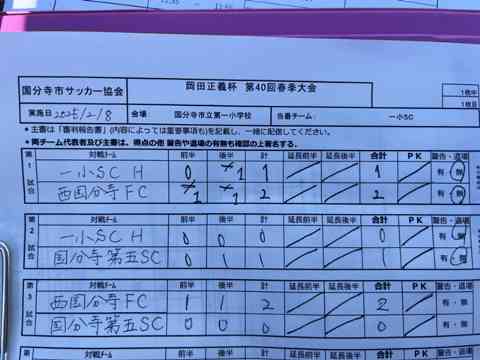 国分寺市サッカー協会 岡田正義杯 第40回春季大会 1枚中 1枚目
実施日 2025/2/8 会場: 国分寺市立第一小学校 当番チーム: 一小SC
*主審は「審判報告書」(内容によっては重要事項も)を記載し、一緒に配信してください。
*両チーム代表者及び主審は、得点の他 警告や退場の有無も確認の上署名する。
第1試合 対戦チーム 前半 後半 計 延長前半 延長後半 合計 PK 警告・退場
一小SC H 0 1 1 1 有・無
西国分寺FC 1 1 2 2 有・無
第2試合 対戦チーム 前半 後半 計 延長前半 延長後半 合計 PK 警告・退場
一小SC H 0 0 0 0 有・無
国分寺第五SC 0 1 1 1 有・無
第3試合 対戦チーム 前半 後半 計 延長前半 延長後半 合計 PK 警告・退場
西国分寺FC 1 1 2 2 有・無
国分寺第五SC 0 0 0 0 有・無
対戦チーム 前半 後半 計 延長前半 延長後半 合計 PK 警告・退場